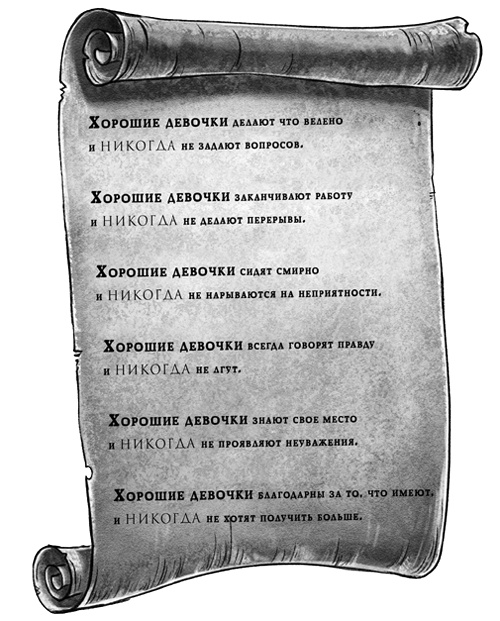 Хорошие девочки делают что велено
и НИКОГДА не задают вопросов.
Хорошие девочки заканчивают работу
и НИКОГДА не делают перерывы.
Хорошие девочки сидят смирно
и НИКОГДА не нарываются на неприятности.
Хорошие девочки всегда говорят правду
и НИКОГДА не лгут.
Хорошие девочки знают свое место
и НИКОГДА не проявляют неуважения.
Хорошие девочки благодарны за то, что имеют,
и НИКОГДА не хотят получить больше.